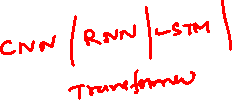 CNN | RNN | LSTM |
Transformer